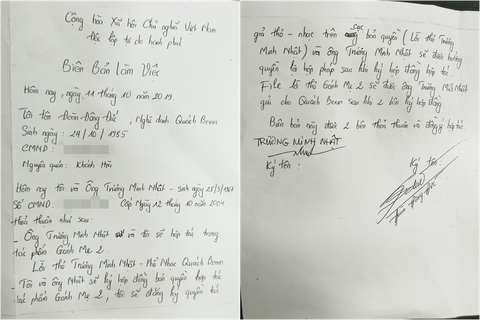 Cộng hòa Xã hội Chủ nghĩa Việt Nam
Độc lập tự do hạnh phúc
Biên Bản Làm Việc
Hôm nay, ngày 11 tháng 10 năm 2019
Tôi tên Đoàn Đông Đức, Nghệ danh Quách Beem
Sinh ngày: 24/10/1985
CMND:
Nguyên quán: Khánh Hòa
Hôm nay tôi và Ông Trương Minh Nhật - sinh ngày 28/3/
Số CMND: Cấp Ngày 12 tháng 10 năm 2004
thoả thuận như sau:
- Ông Trương Minh Nhật và tôi sẽ hợp tác trong
tác phẩm Gánh Mẹ 2
Lời thơ Trương Minh Nhật - Phổ Nhạc Quách Beem
- Tôi và ông Nhật sẽ ký hợp đồng bản quyền hợp tác
tác phẩm Gánh Mẹ 2, tôi sẽ đăng ký quyền tác
giả thơ - nhạc trên cục bản quyền (Lời thơ Trương
Minh Nhật) và ông Trương Minh Nhật sẽ được hưởng
quyền lợi hợp pháp sau khi ký hợp đồng hợp tác.
File lời thơ Gánh Mẹ 2 sẽ được ông Trương Minh Nhật
gửi cho Quách Beem sau khi 2 bên ký hợp đồng
Biên bản này được 2 bên thoả thuận và đồng ý hợp tác.
TRƯƠNG MINH NHẬT
Ký tên:
Ký tên:
Đoàn Đông Đức